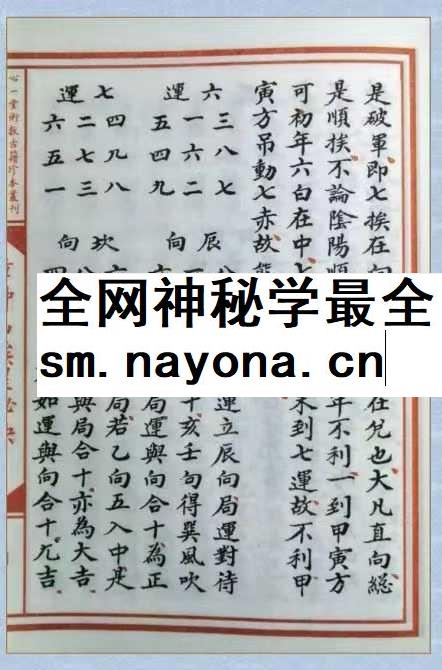 是破軍即七挨在向
在兌也大凡直向總
是順挨不論陰陽順
年不利一到甲寅方
可初年六白在中七
未到七運故不利甲
寅方吊動七赤故能
六運
三八七
一六二
五四九
辰向
運立辰向局運對待
十亥壬句得巽風吹
局運與向合十為正
七運
四九八
二七三
六五一
坎向
局若乙向五入中是
與局合十亦為大吉
如運與向合十尤吉
心一堂術數古籍珍本叢刊
全网神秘学最全
sm.nayona.cn